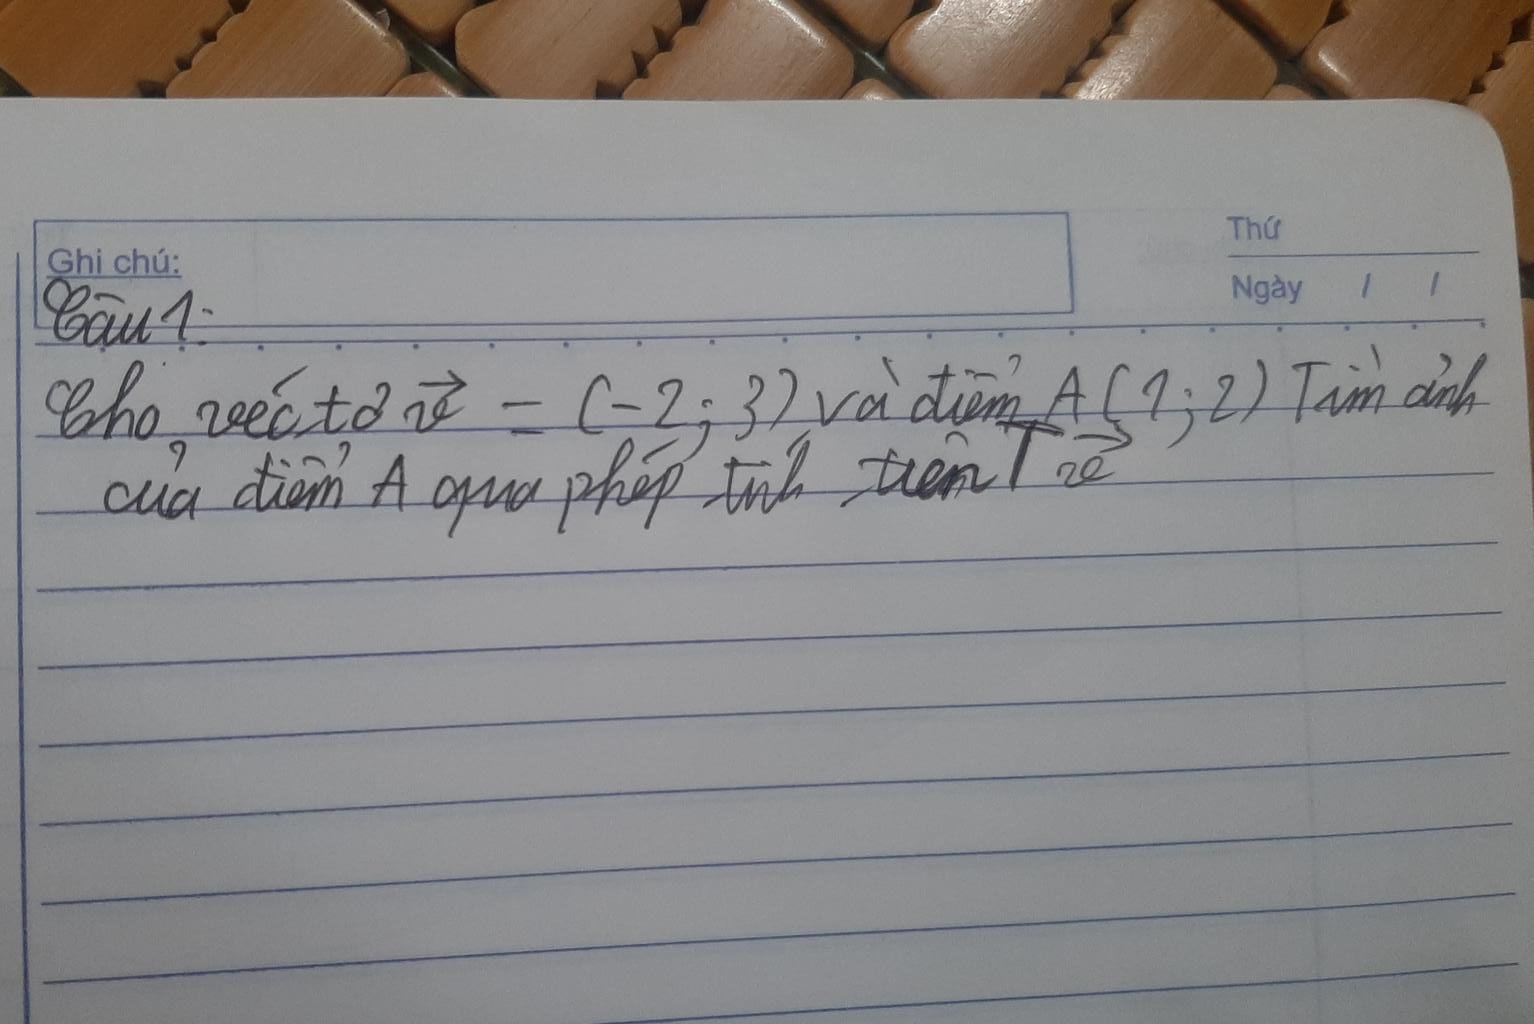 Ghi chú:
Thứ
Ngày / /
Câu 1:
Cho véc tơ v⃗ = (-2; 3) và điểm A(1; 2) Tìm ảnh
của điểm A qua phép tịnh tiến T v⃗